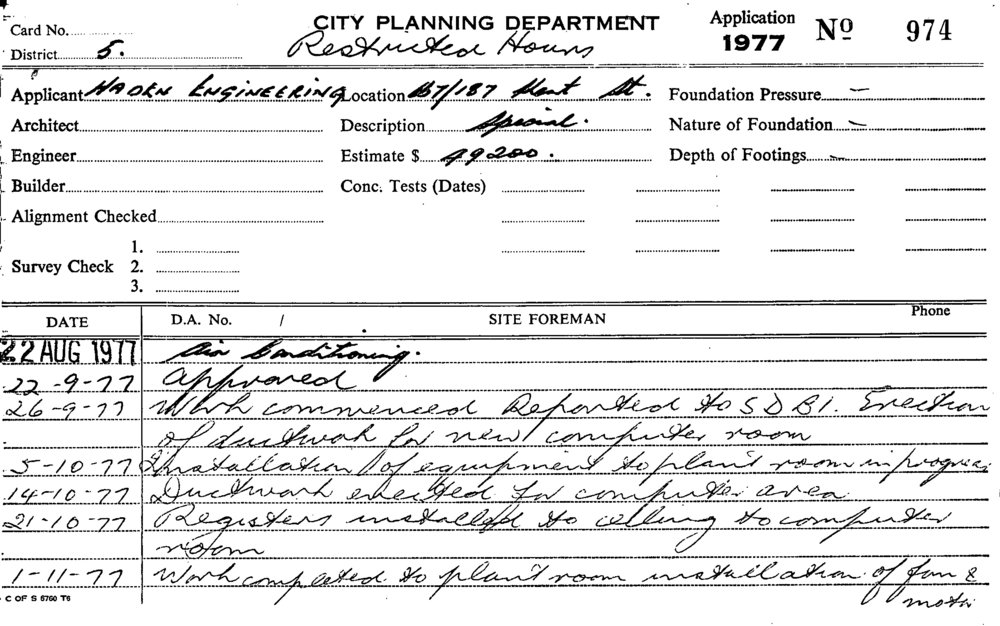 CITY PLANNING DEPARTMENT Application 1977 Nº 974
Card No.
Restricted Hours
District 5.
Applicant HADEN ENGINEERING Location 167/187 Kent St. Foundation Pressure —
Architect Description Special. Nature of Foundation —
Engineer Estimate $ 49200. Depth of Footings —
Builder Conc. Tests (Dates)
Alignment Checked
1.
Survey Check 2.
3.
DATE D.A. No. / SITE FOREMAN Phone
22 AUG 1977 Air Conditioning.
22-9-77 Approved
26-9-77 Work commenced Reported to S D B I. Erection
of ductwork for new computer room
5-10-77 Installation of equipment to plant room in progress
14-10-77 Ductwork erected for computer area
21-10-77 Registers installed to ceiling to computer
room
1-11-77 Work completed to plant room installation of fan &
motor
C OF S 6760 T6